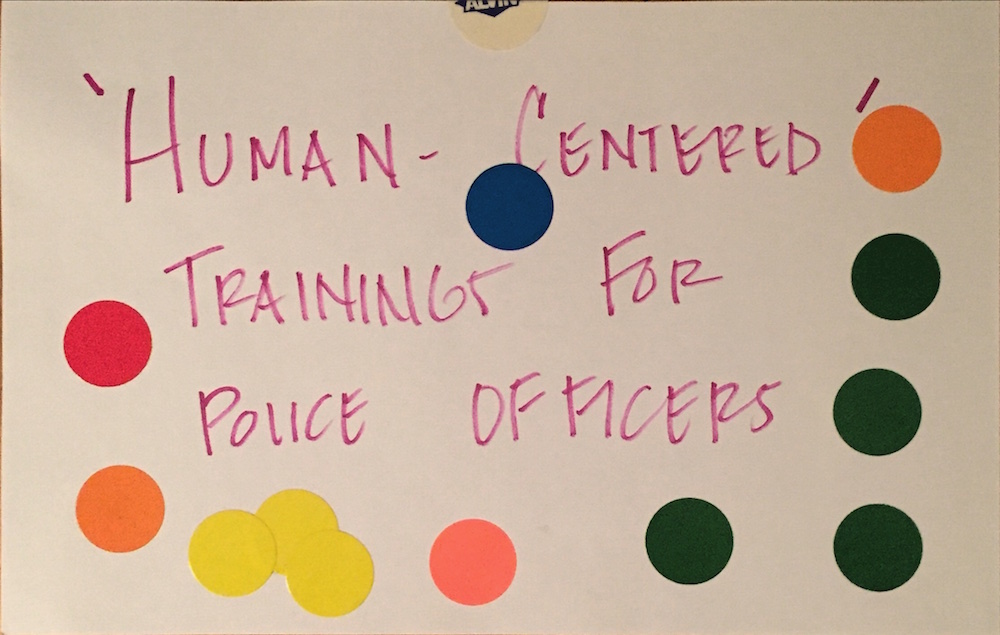 ALVIN
‵HUMAN- CENTERED′
TRAININGS FOR
POLICE OFFICERS